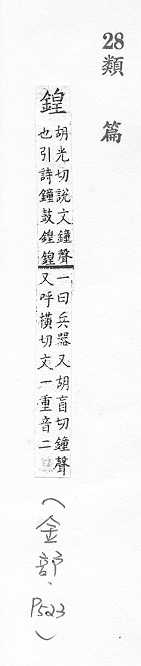 28類篇
鍠
胡光切說文鐘聲
也引詩鐘鼓鍠鍠
一曰兵器又胡盲切鐘聲
又呼橫切文一重音二
（金部．P523）